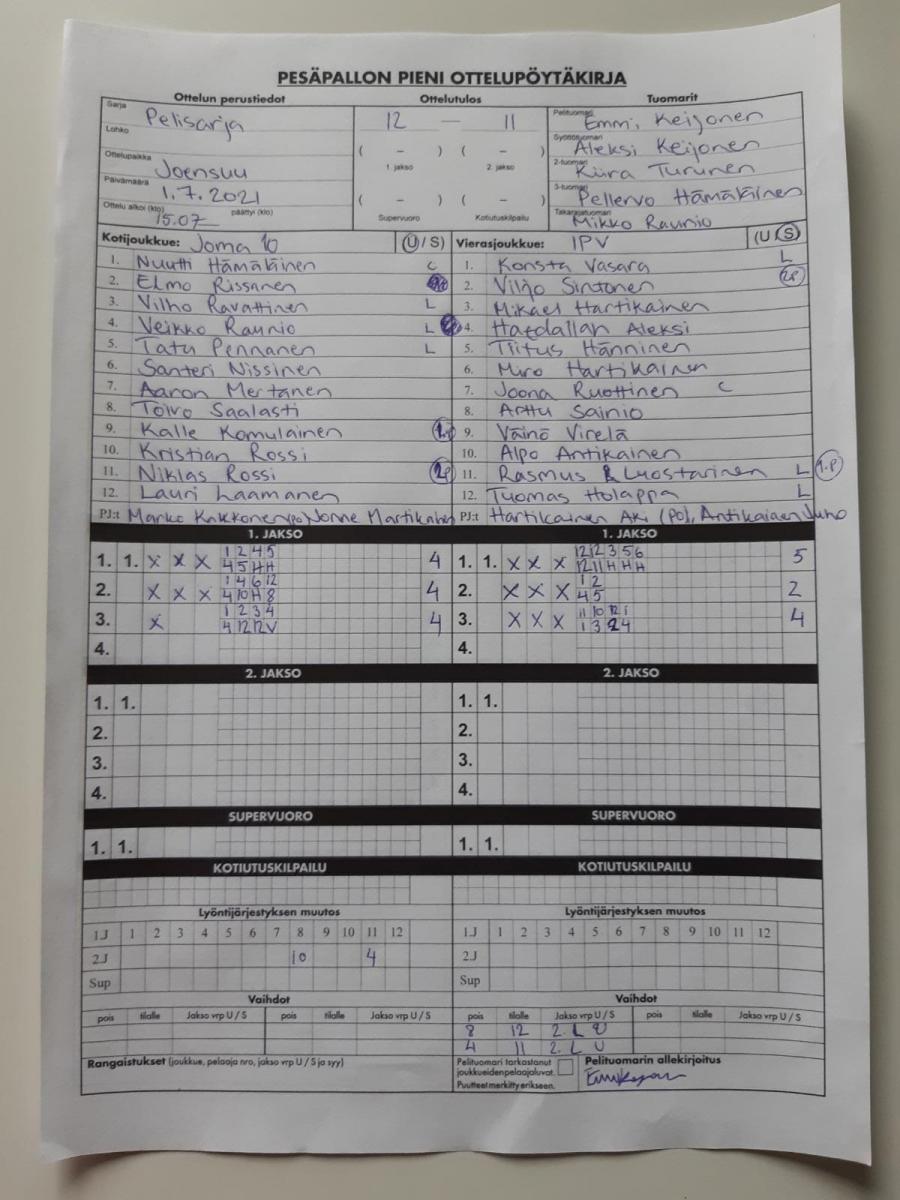 PESÄPALLON PIENI OTTELUPÖYTÄKIRJA
Ottelun perustiedot Ottelutulos Tuomarit
Sarja Pelisarja 12 — 11 Pelituomari Emmi Keijonen
Lohko ( – ) ( – ) Syöttötuomari Aleksi Keijonen
Ottelupaikka Joensuu 1. jakso 2. jakso 2-tuomari Kiira Turunen
Päivämäärä 1.7.2021 ( – ) ( – ) 3-tuomari Pellervo Hämäläinen
Ottelu alkoi (klo) 15.07 päättyi (klo) Supervuoro Kotiutuskilpailu Takarajatuomari Mikko Raunio
Kotijoukkue: Joma 10 (U/S) Vierasjoukkue: IPV (U/S)
1. Nuutti Hämäläinen C 1. Konsta Vasara L
2. Elmo Rissanen 2. Viljo Sintonen 2P
3. Vilho Ravattinen L 3. Mikael Hartikainen
4. Veikko Raunio L 4. Hatdallah Aleksi
5. Tatu Pennanen L 5. Tiitus Hänninen
6. Santeri Nissinen 6. Miro Hartikainen
7. Aaron Mertanen 7. Joona Ruottinen C
8. Toivo Saalasti 8. Arttu Sainio
9. Kalle Komulainen 9. Väinö Virelä
10. Kristian Rossi 10. Alpo Antikainen
11. Niklas Rossi 2P 11. Rasmus Luostarinen L 1.P
12. Lauri Laamanen 12. Tuomas Holappa L
PJ:t Marko Kakkonen(po) Jonne Martikainen PJ:t Hartikainen Aki (PO), Antikainen Juho
1. JAKSO 1. JAKSO
1 2 4 5 12 12 3 5 6
1. 1. X X X 4 5 H H 4 1. 1. X X X 12 11 H H H 5
1 4 6 12 1 2
2. X X X 4 10 H 8 4 2. X X X 4 5 2
1 2 3 4 11 10 12 1
3. X 4 12 12 V 4 3. X X X 1 3 2 4 4
4. 4.
2. JAKSO 2. JAKSO
1. 1. 1. 1.
2. 2.
3. 3.
4. 4.
SUPERVUORO SUPERVUORO
1. 1. 1. 1.
KOTIUTUSKILPAILU KOTIUTUSKILPAILU
Lyöntijärjestyksen muutos Lyöntijärjestyksen muutos
1J 1 2 3 4 5 6 7 8 9 10 11 12 1J 1 2 3 4 5 6 7 8 9 10 11 12
2J 10 4 2J
Sup Sup
Vaihdot Vaihdot
pois tilalle Jakso vrp U / S pois tilalle Jakso vrp U / S pois tilalle Jakso vrp U / S pois tilalle Jakso vrp U / S
8 12 2. L U
4 11 2. L U
Rangaistukset (joukkue, pelaaja nro, jakso vrp U / S ja syy) Pelituomari tarkastanut joukkueiden pelaajaluvat. Pelituomarin allekirjoitus
Puutteet merkitty erikseen.